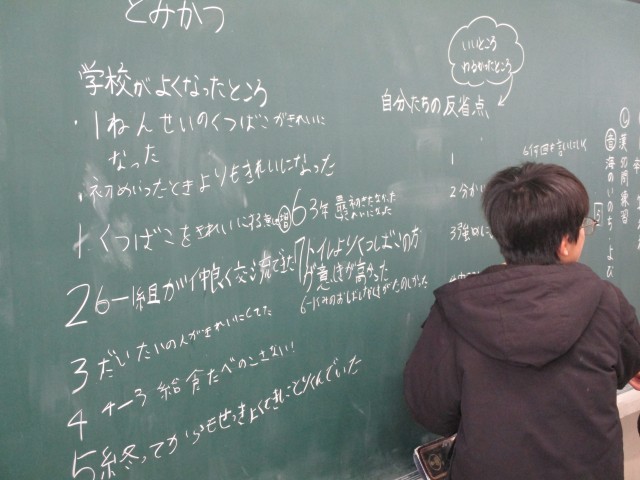 とみかつ
学校がよくなったところ
・1ねんせいのくつばこがきれいに
なった
・初めいったときよりもきれいになった
1 くつばこをきれいにする意
6 3年
2 6-1組が仲良く交流できた
7 トイレよりくつばこの方
が意しきが高かった
3 だいたいの人がきれいにしてた
4 4-3 給食たべのこさない!
5 終ってからもせっきょくてきにとりくんでいた
いいところ
わるかったところ
自分たちの反省点
1
2 分か
3 強
漢 50問練習
音 海のいのち・よ